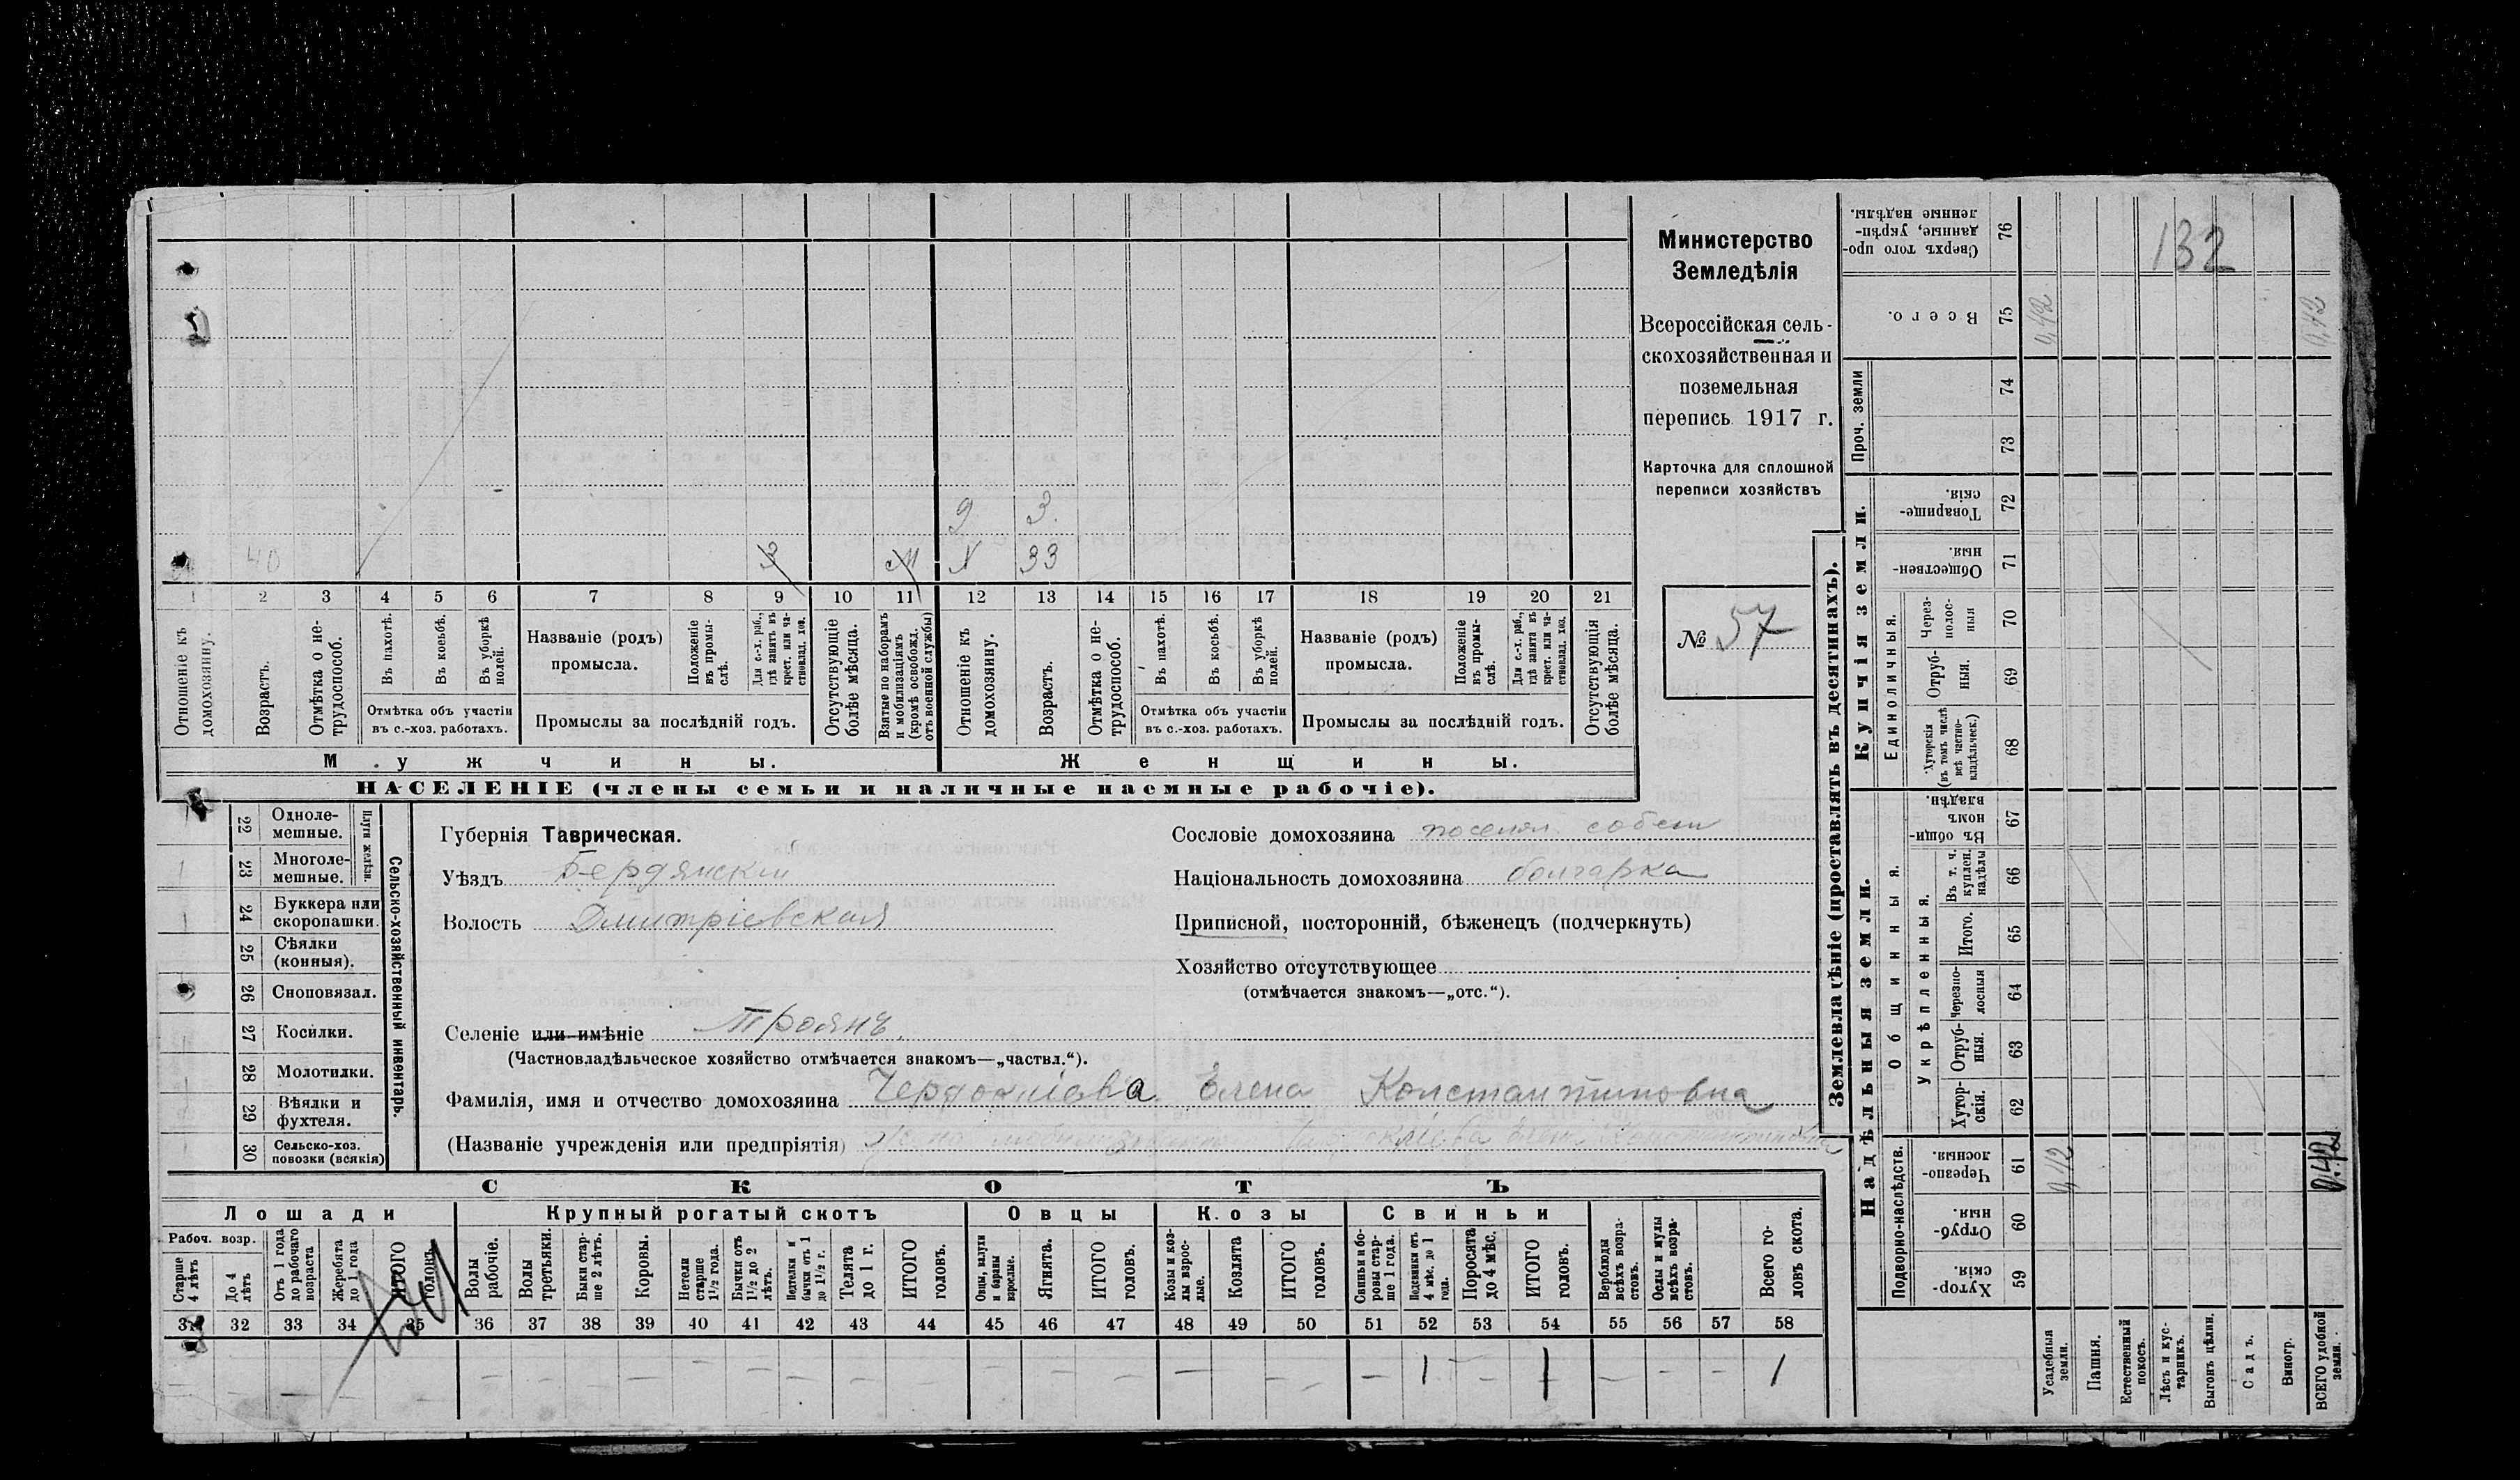 Министерство
Земледѣлія
Всероссійская сель-
скохозяйственная и
поземельная
перепись 1917 г.
Карточка для сплошной
переписи хозяйствъ
№ 57
132
2 3
40 З М N 33
1 2 3 4 5 6 7 8 9 10 11 12 13 14 15 16 17 18 19 20 21
Отношеніе къ домохозяину.
Возрастъ.
Отмѣтка о не-трудоспособ.
Въ пахотѣ.
Въ косьбѣ.
Въ уборкѣ полей.
Отмѣтка объ участіи
въ с.-хоз. работахъ.
Названіе (родъ)
промысла.
Положеніе въ промы-слѣ.
Для с.-х. раб., гдѣ занятъ въ крест. или ча-стновлад. хоз.
Промыслы за послѣдній годъ.
Отсутствующіе болѣе мѣсяца.
Взятые по наборамъ и мобилизаціямъ (кромѣ освобожд. отъ военной службы)
Отношеніе къ домохозяину.
Возрастъ.
Отмѣтка о не-трудоспособ.
Въ пахотѣ.
Въ косьбѣ.
Въ уборкѣ полей.
Отмѣтка объ участіи
въ с.-хоз. работахъ.
Названіе (родъ)
промысла.
Положеніе въ промы-слѣ.
Для с.-х. раб., гдѣ занята въ крест. или ча-стновлад. хоз.
Промыслы за послѣдній годъ.
Отсутствующія болѣе мѣсяца.
Мужчины. Женщины.
НАСЕЛЕНІЕ (члены семьи и наличные наемные рабочіе).
22 Одноле-мешные.
23 Многоле-мешные.
Плуги желѣзн.
24 Буккера или скоропашки.
25 Сѣялки (конныя).
26 Сноповязал.
27 Косилки.
28 Молотилки.
29 Вѣялки и фухтеля.
30 Сельско-хоз. повозки (всякія)
Сельско-хозяйственный инвентарь.
Губернія Таврическая.
Уѣздъ Бердянскій
Волость Дмитріевская
Сословіе домохозяина поселян. собств
Національность домохозяина болгарка
Приписной, посторонній, бѣженецъ (подчеркнуть)
Хозяйство отсутствующее
(отмѣчается знакомъ—„отс.“).
Селеніе или имѣніе Троянъ.
(Частновладѣльческое хозяйство отмѣчается знакомъ—„частвл.“).
Фамилія, имя и отчество домохозяина Елена Константиновна
(Названіе учрежденія или предпріятія)
СКОТЪ
Лошади Крупный рогатый скотъ Овцы Козы Свиньи
Рабоч. возр.
Старше 4 лѣтъ
До 4 лѣтъ
Отъ 1 года до рабочаго возраста
Жеребята до 1 года
ИТОГО головъ.
Волы рабочіе.
Волы третьяки.
Быки стар-ше 2 лѣтъ.
Коровы.
Нетели старше 1½ года.
Бычки отъ 1½ до 2 лѣтъ.
Недтелки и бычки отъ 1 до 1½ г.
Телята до 1 г.
ИТОГО головъ.
Овцы, валухи и бараны взрослые.
Ягнята.
ИТОГО головъ.
Козы и коз-лы взрос-лые.
Козлята
ИТОГО головъ.
Свиньи и бо-ровы стар-ше 1 года.
Подсвинки отъ 4 мѣс. до 1 года.
Поросята до 4 мѣс.
ИТОГО головъ.
Верблюды всѣхъ возра-стовъ.
Ослы и мулы всѣхъ возра-стовъ.
Всего го-ловъ скота.
31 32 33 34 35 36 37 38 39 40 41 42 43 44 45 46 47 48 49 50 51 52 53 54 55 56 57 58
— — — — — — — — — — — — — — — — — 1 — 1 — — — 1
Землевладѣніе (проставлять въ десятинахъ).
Сверхъ того про-данные, укрѣп-ленные надѣлы. 76
Всего. 75 0,42 0,42
Проч. земли 74 73
Купчія земли.
Товарище-скія. 72
Обществен-ныя. 71
Единоличныя.
Через-полос-ныя 70
Отруб-ныя. 69
Хуторскія (въ томъ числѣ всѣ частно-владѣльческ.) 68
Надѣльныя земли.
Общинныя.
Въ общи-номъ владѣн. 67
Укрѣпленныя.
Въ т. ч. куплен. надѣлы 66
Итого. 65
Черезпо-лосныя 64
Отруб-ныя. 63
Хутор-скія. 62
Подворно-наслѣдств.
Черезпо-лосныя. 61 0,42 0,42
Отруб-ныя. 60
Хутор-скія. 59
Усадебныя земли.
Пашня.
Естественный покосъ.
Лѣсъ и кус-тарникъ.
Выгонъ цѣлин.
Садъ.
Виногр.
ВСЕГО удобной земли.